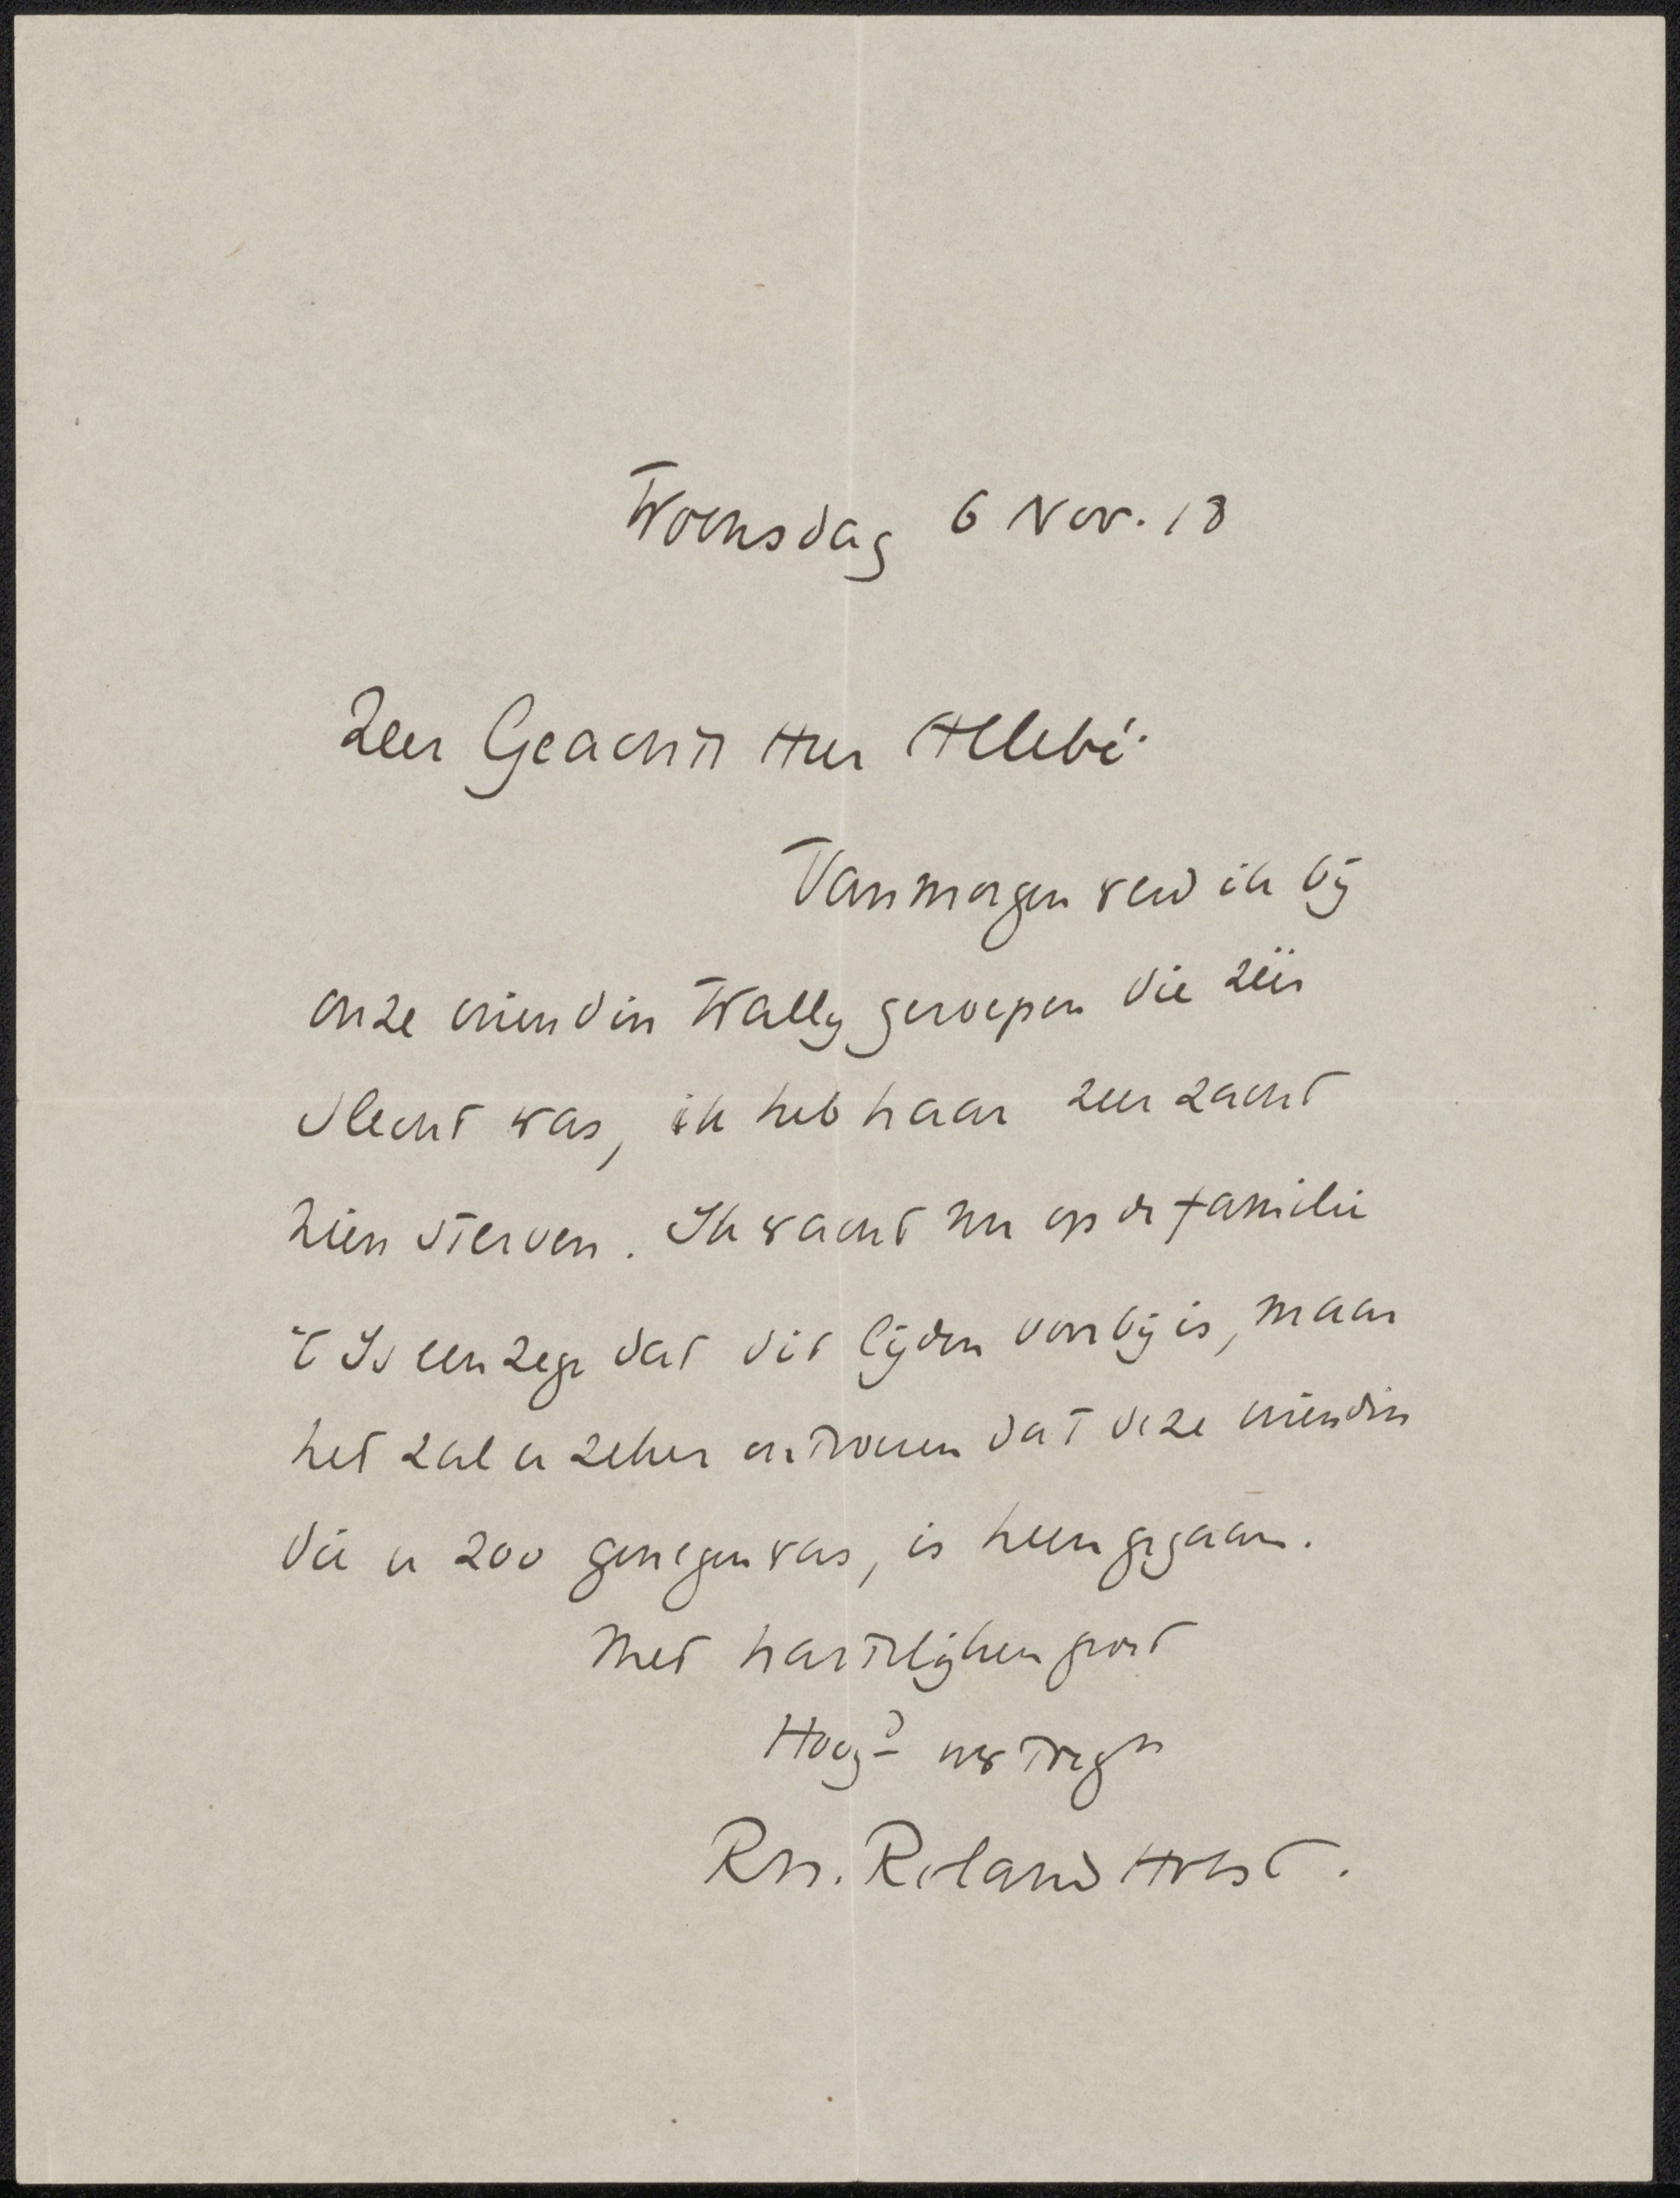 Woensdag 6 Nov. 18
Zeer Geachte Heer Allebé.
Vanmorgen werd ik bij
onze vriendin Wally geroepen die zéér
slecht was, ik heb haar zeer zacht
zien sterven. Ik wacht nu op de familie
't Is een zege dat dit lijden voorbij is, maar
het zal u zeker ontroeren dat deze vriendin
die u zoo genegen was, is heengegaan.
Met hartelijken groet
Hoogd
RN. Roland Holst.